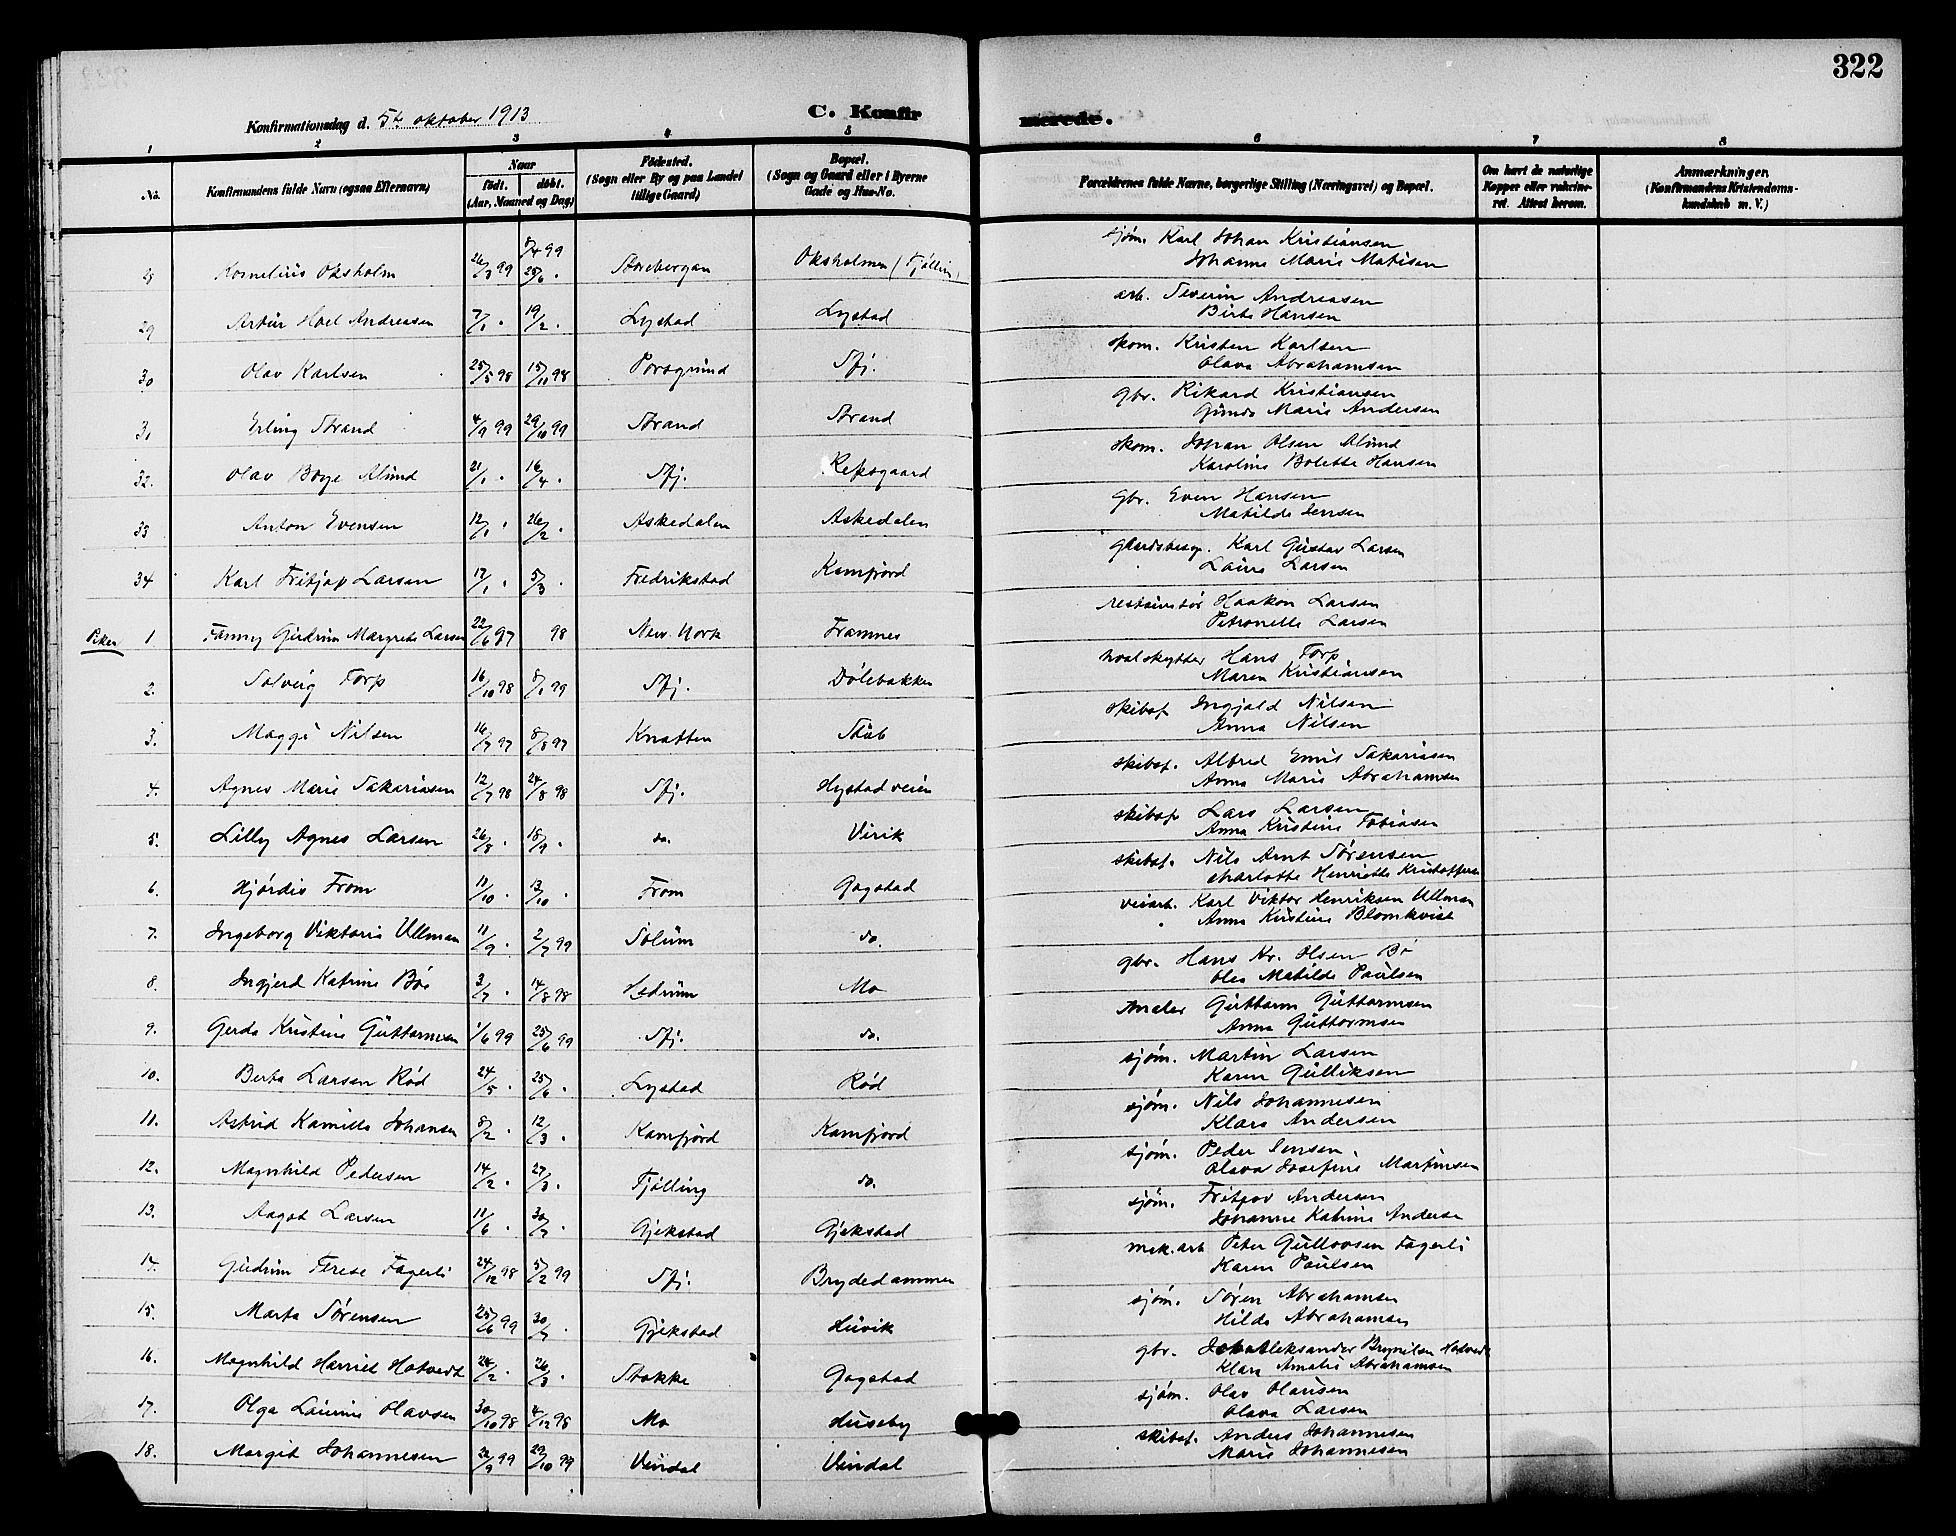 322
Konfirmationsdag d. 5te oktober 1913
C. Konfirmerede.
1 2 3 4 5 6 7 8
No. Konfirmandens fulde Navn (ogsaa Efternavn)
Naar født. døbt. (Aar, Maaned og Dag)
Fødested. (Sogn eller By og paa Landet tillige Gaard)
Bopæl. (Sogn og Gaard eller i Byerne Gade og Hus-No.
Forældrenes fulde Navne, borgerlige Stilling (Næringsvei) og Bopæl.
Om havt de naturlige Kopper eller vaccineret. Attest herom.
Anmærkninger. (Konfirmandens Kristendomskundskab m. V.)
28 Kornelius Oksholm 26/3 99 Storebergan Oksholmen (Tjølling) sjøm. Karl Johan Kristiansen
Johanne Marie Matisen
29 Artur Hoel Andreasen 7/1 " 19/2 " Lystad Lystad arb. Severin Andreasen
Birte Hansen
30 Olav Karlsen 25/5 98 15/11 98 Porsgrund Sfj. skom. Kristen Karlsen
Olava Abrahamsen
31 Erling Strand 4/9 99 29/10 99 Strand Strand gbr. Rikard Kristiansen
Gunda Marie Andersen
32. Olav Borge Alund 21/1 " 16/4 " Sfj. Refsgaard skom. Johan Olsen Alund
Karoline Bolette Hansen
33 Anton Evensen 12/1 " 26/2 " Askedalen Askedalen gbr. Even Hansen
Matilde Jensen
34 Karl Fritjap Larsen 17/1 " 5/3 " Fredrikstad Kamfjord gaardsbesøp. Karl Gustav Larsen
Laura Larsen
Piker 1. Fanny Gudrun Margrete Larsen 22/6 97 98 New York Framnes restauratør Haakon Larsen
Petronelle Larsen
2. Solveig Torp 16/10 98 8/1 99 Sfj. Dølebakken hvalskytter Hans Torp
Maren Kristiansen
3. Maggi Nilsen 16/7 97 8/8 97 Knatten Stub skibsf. Ingjald Nilsen
Anna Nilsen
4. Agnes Marie Sakariasen 12/7 98 24/8 98 Sfj. Hystadveien skibsf. Alfred Emil Sakariasen
Anna Marie Abrahamsen
5. Lilly Agnes Larsen 26/8 " 18/9 " do. Virik skibsf. Lars Larsen
Anna Kristine Tobiasen
6. Hjørdis From 11/10 " 13/10 " From Gogstad skibsf. Nils Arnt Sørensen
Charlotte Henriette Kristoffersen
7. Ingeborg Viktoria Ullman 11/9 " 2/7 99 Solum do. veiarb. Karl Viktor Henriksen Ullman
Anna Kristine Blomkvist
8. Ingjerd Katrine Bø 3/7 " 14/8 98 Hedrum Mo gbr. Hans Kr. Olsen Bø
Ole Matilde Paulsen
9. Gerda Kristine Guttormsen 1/6 99 25/6 99 Sfj. do. maler Guttorm Guttormsen
Anna Guttormsen
10. Berta Larsen Rød 24/5 " 25/6 " Lystad Rød sjøm. Martin Larsen
Karen Gulliksen
11. Astrid Kamilla Johansen 8/2 " 12/3 " Kamfjord Kamfjord sjøm. Nils Johannesen
Klara Andersen
12. Magnhild Pedersen 14/2 " 27/3 " Tjølling do. sjøm. Peder Jensen
Olava Josefine Martinsen
13. Aagot Larsen 11/6 " 30/7 " Gjekstad Gjekstad sjøm. Fritjov Andersen
Johanne Katrine Andersen
14. Gudrun Terese Fagerli 24/12 98 5/2 99 Sfj. Brydedammen mek.arb. Peter Gullovsen Fagerli
Karen Paulsen
15. Marta Sørensen 25/6 99 30/7 " Gjekstad Huvik sjøm. Søren Abrahamsen
Hilda Abrahamsen
16. Magnhild Harriet Hotvedt 24/2 " 26/3 " Stokke Gogstad gbr. Johan Aleksander Brynilsen Hotvedt
Klara Amalie Abrahamsen
17. Olga Laurine Olavsen 30/10 98 4/12 98 Mo Huseby sjøm. Olav Olausen
Olava Larsen
18. Margit Johannesen 22/9 99 29/10 99 Vindal Vindal skibsf. Anders Johannesen
Marie Johannesen